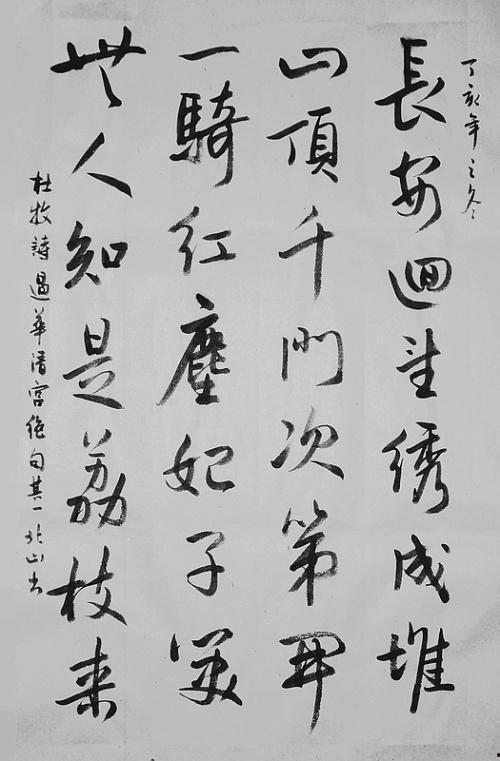 丁亥年之冬
長安迴望綉成堆
山頂千門次第開
一騎紅塵妃子笑
無人知是荔枝来
杜牧詩過華清宫絶句其一北山书